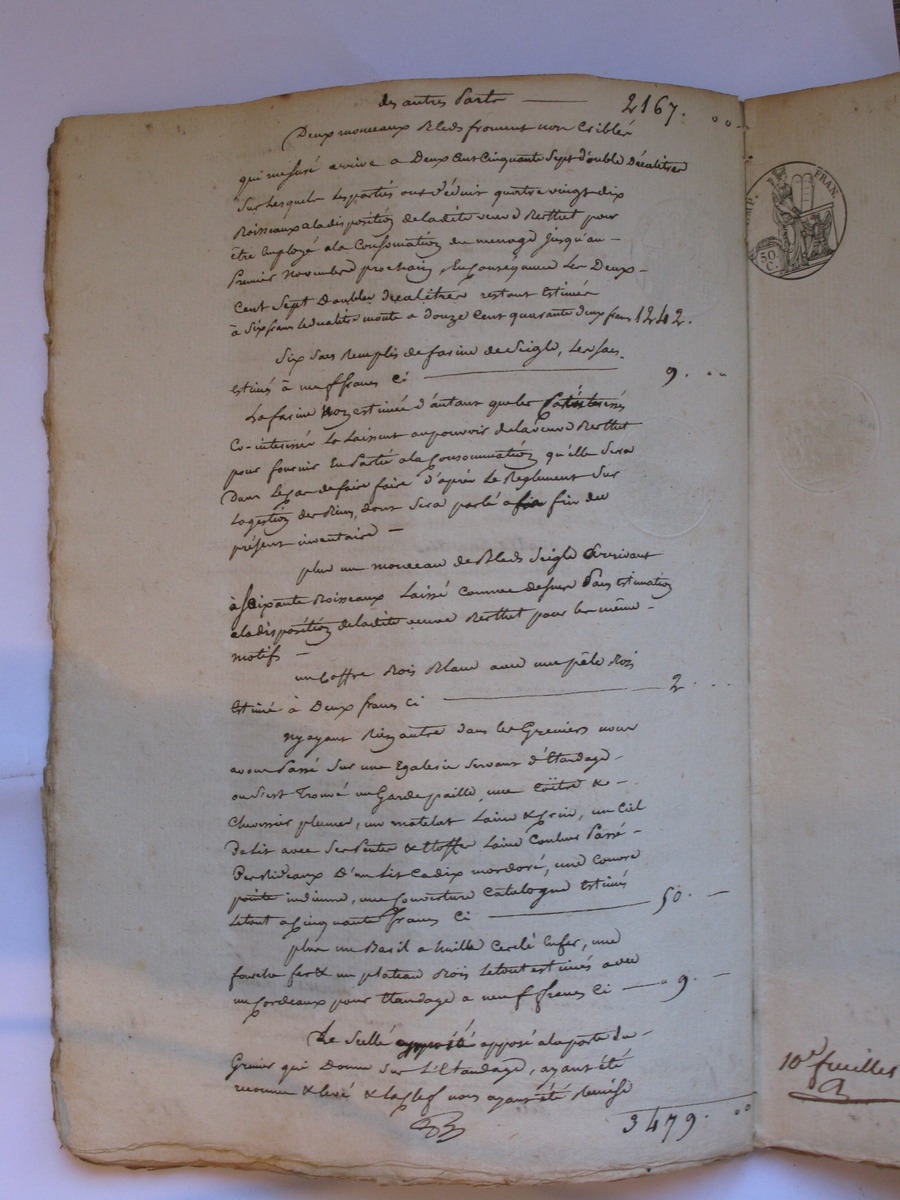 des autres Parts — 2167. oo
Deux monceaux Bleds froment non Criblés
qui mesuré arrive a Deux Cent Cinquante Sept double Décalitres
Sur Lesquels Les partiés ont déduit quatre vingt dix
Boisseaux a la disposition de la dite veuve Berthet pour
être Employé a la Consomation du menage Jusqu'au
Premier Novembre prochain, En Conseqnance Les Deux
Cent Sept Doubles decalitres restant Estimés
à Six frans le decalitre monte a douze Cent quarante deux frans 1242.
Six Sacs Remplis de farine de Seigle, Les Sacs
Estimés à neuf francs Ci — 9.
La farine Non Estimée d'autant que les
Co-interessés La Laissent au pouvoir de la veuve Berthet
pour fournir En Partie a la Consommation qu'elle Sera
Dans Le Cas de faire faire d'après Le Reglement Sur
La gestion des Biens, dont Sera parlé a fin du
présent inventaire —
plus un monceau de Bleds Seigle Arrivant
à Soixante Boisseaux Laissé Comme dessus Sans Estimation
a la disposition de la dite veuve Berthet pour les même
motifs —
un Coffre Bois Blanc avec une pêle Bois
Estimé à Deux francs Ci — 2.
N'y ayant Rien autre dans les Greniers nous
avons Passé Sur une Servant d'Etandage
ou S'est Trouvé un Garde paille, une Coitre &
Chevssier plumes, un matelat Laine & Crin, un Ciel
De Lit avec Ses Pentes & Etoffe Laine Couleur Passé
Des Rideaux D'un Lit Cadix mordoré, une Couvre
pointe indienne, une Couverture Catalogne Estimés
Le tout a Cinquante francs Ci — 50.
plus un Basil a huille Cerclé En fer, une
fourche fer & un plateau Bois Le tout estimés avec
un Cordeaux pour Etandage a neuf francs Ci — 9.
Le Scellé apposé a la porte du
Grenier qui Donne Sur L'Etandage, ayant été
reconnu & levé & la Clef nous ayant été Remise
3479. oo
FRAN
50
C.
10e feuilles